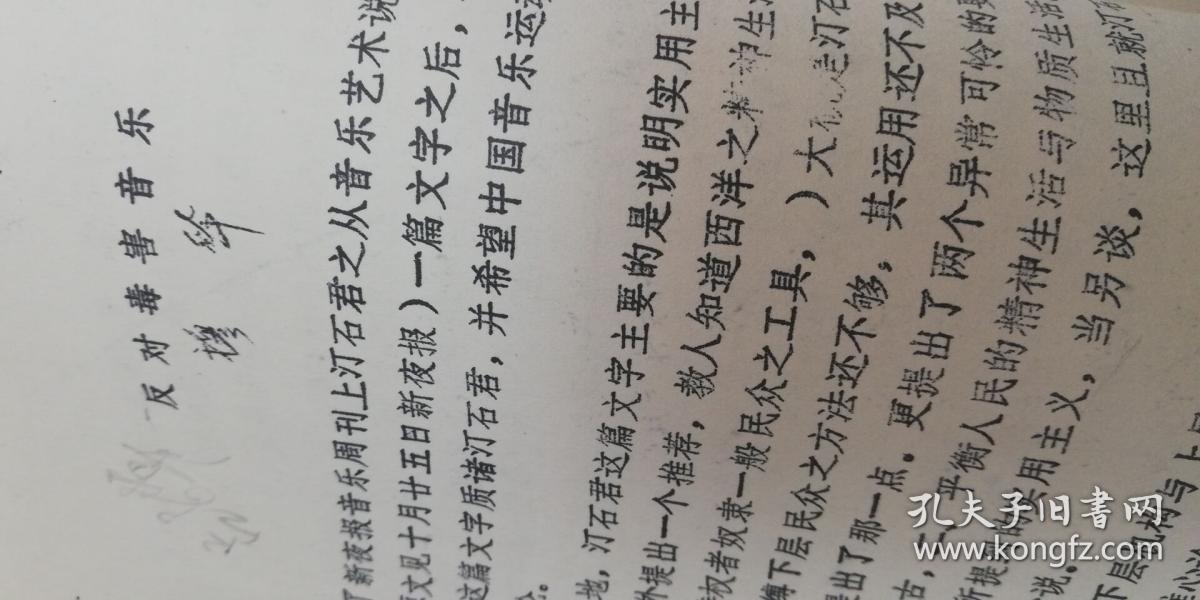 反对毒害音乐
穆华
了新夜报音乐周刊上汀石君之从音乐艺术说
文见十月廿五日新夜报)一篇文字之后，
这篇文字质诸汀石君，并希望中国音乐运动
地，汀石君这篇文字主要的是说明实用主
外提出一个推荐，教人知道西洋之精神生活
权者奴隶一般民众之工具，)大 是汀石
下层民众之方法还不够，其运用还不及
提出了那一点。更提出了两个异常可怜的
古，平衡人民的精神生活与物质生活
所提 的实用主义，当另谈，这里且就汀
说。
下层 构与上
孔夫子旧书网
www.kongfz.com